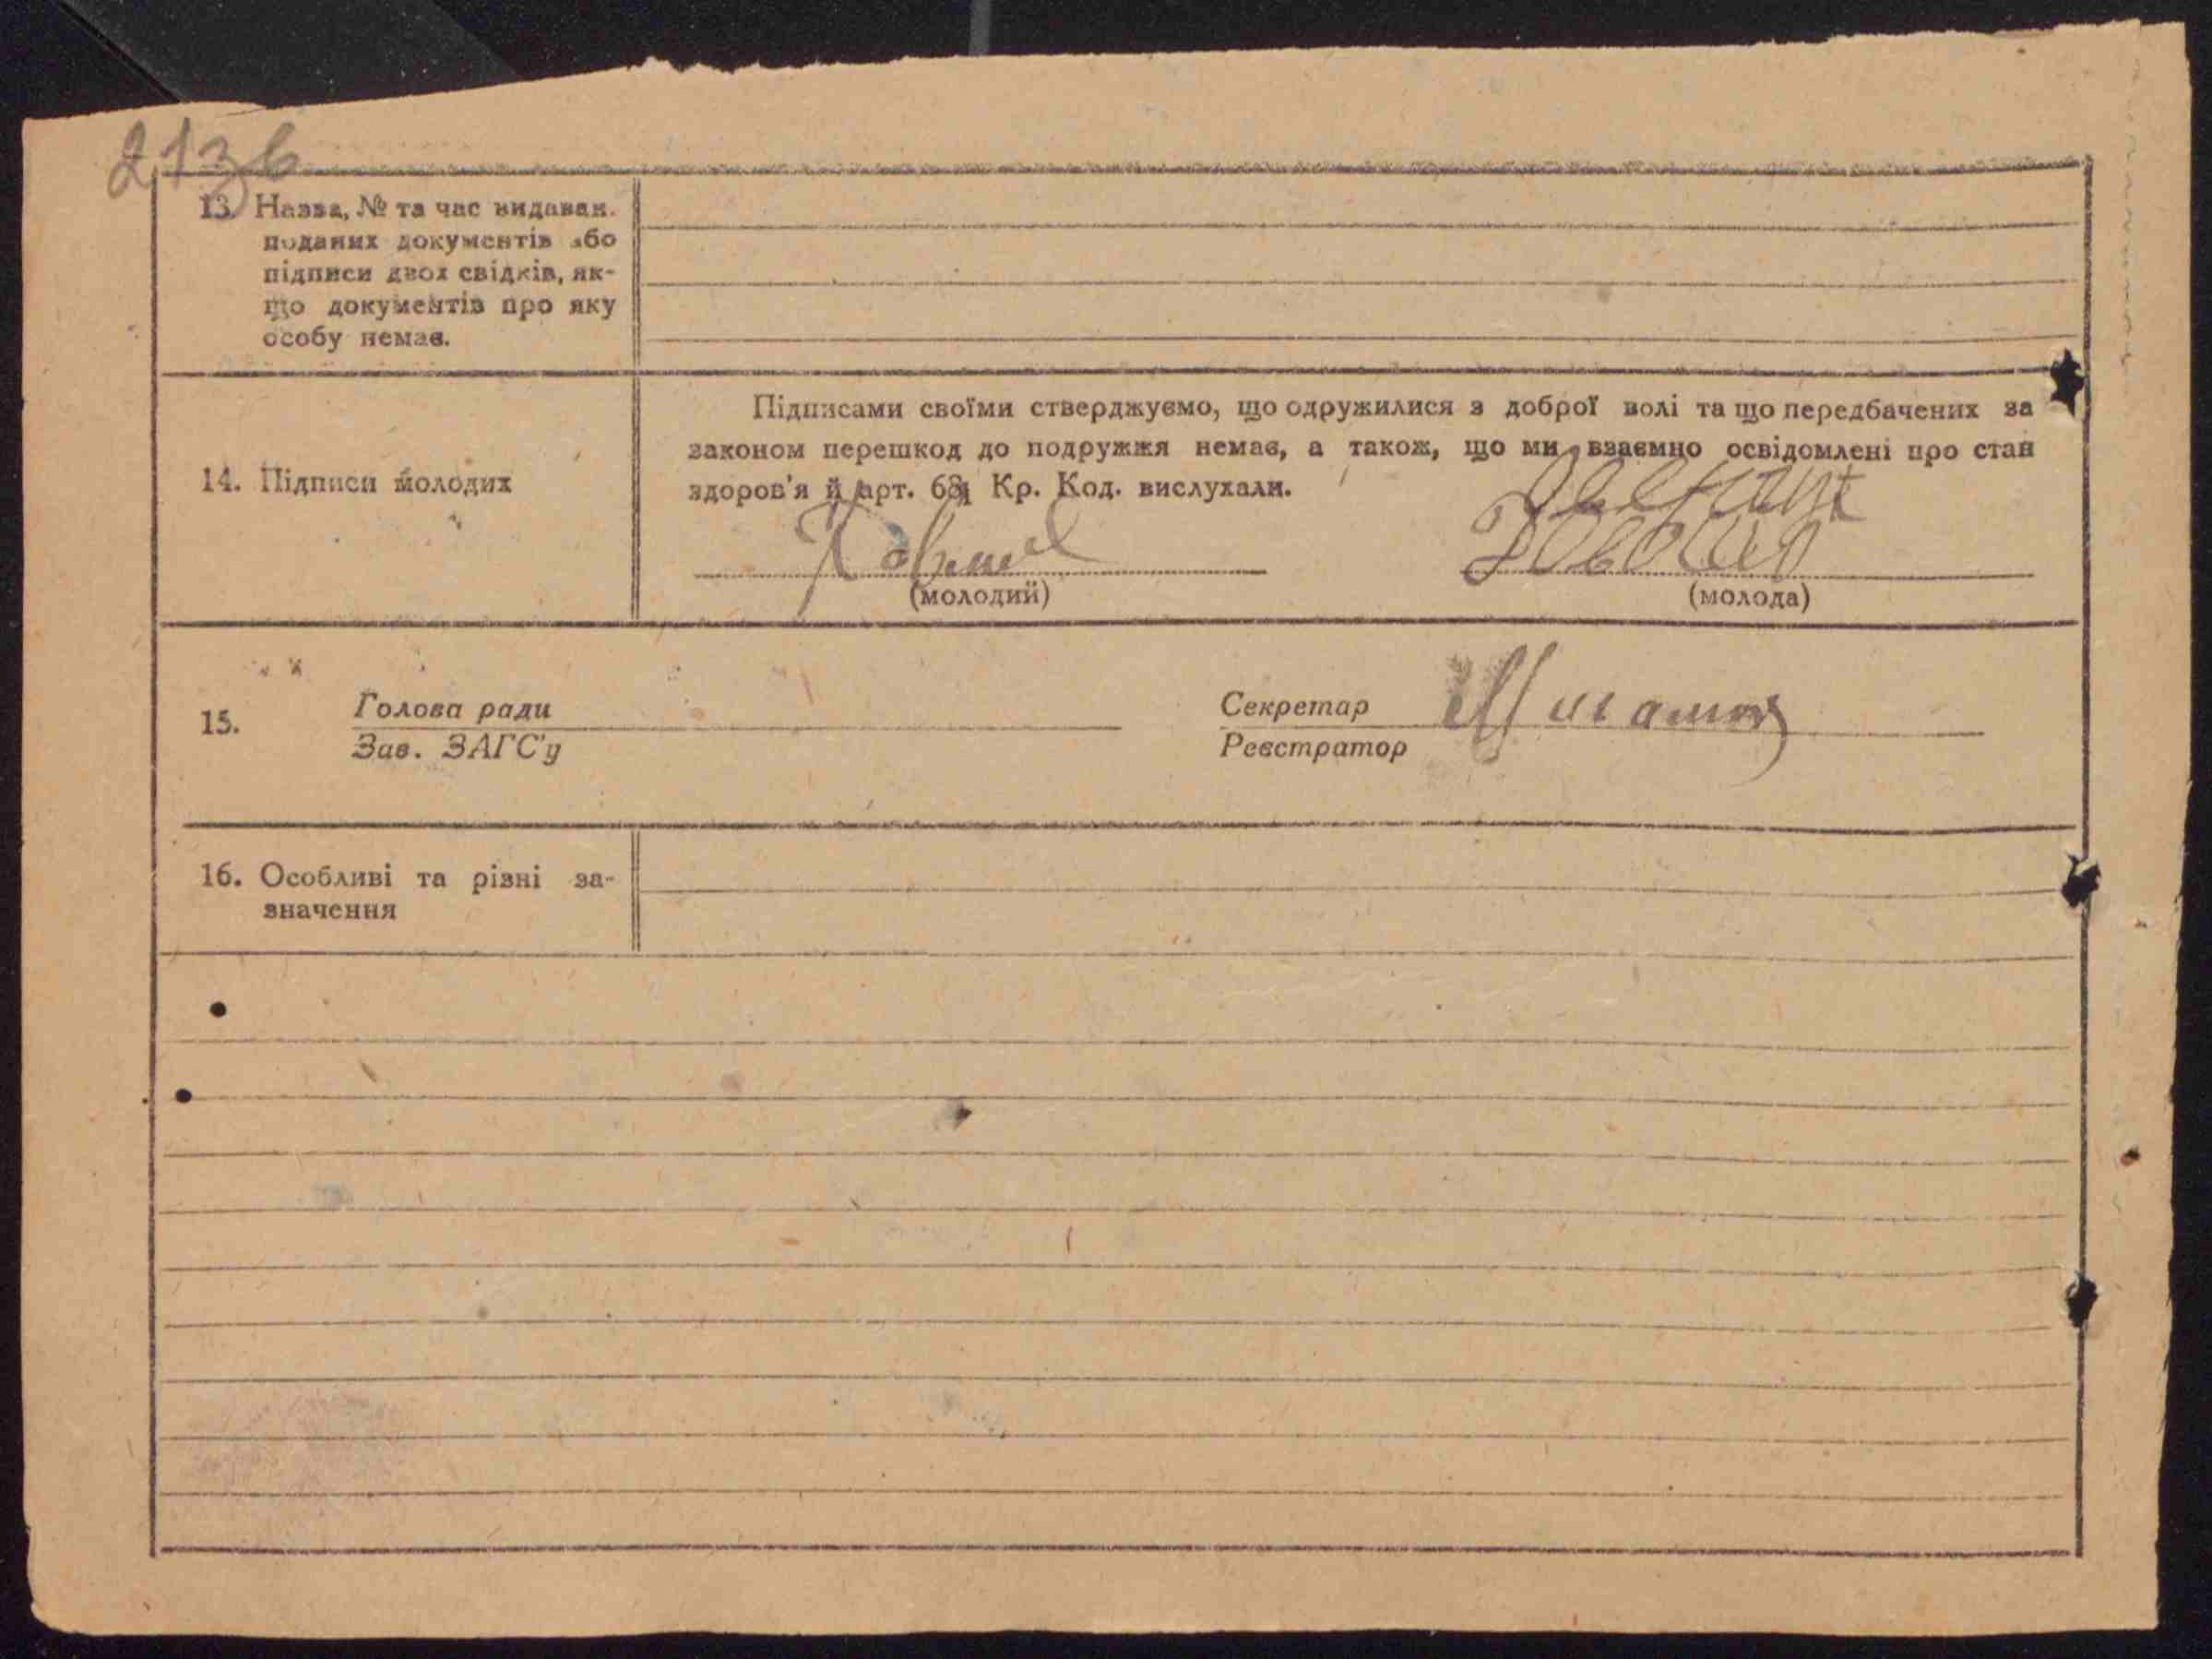 213б
13. Назва, № та час видаван.
поданих документів або
підписи двох свідків, як-
що документів про яку
особу немає.
Підписами своїми стверджуємо, що одружилися з доброї волі та що передбачених за
законом перешкод до подружжя немає, а також, що ми взаємно освідомлені про стан
14. Підписи молодих
здоров'я й арт. 68 Кр. Код. вислухали.
(молодий) (молода)
15. Голова ради Секретар
Зав. ЗАГС'у Реєстратор
16. Особливі та різні за-
значення